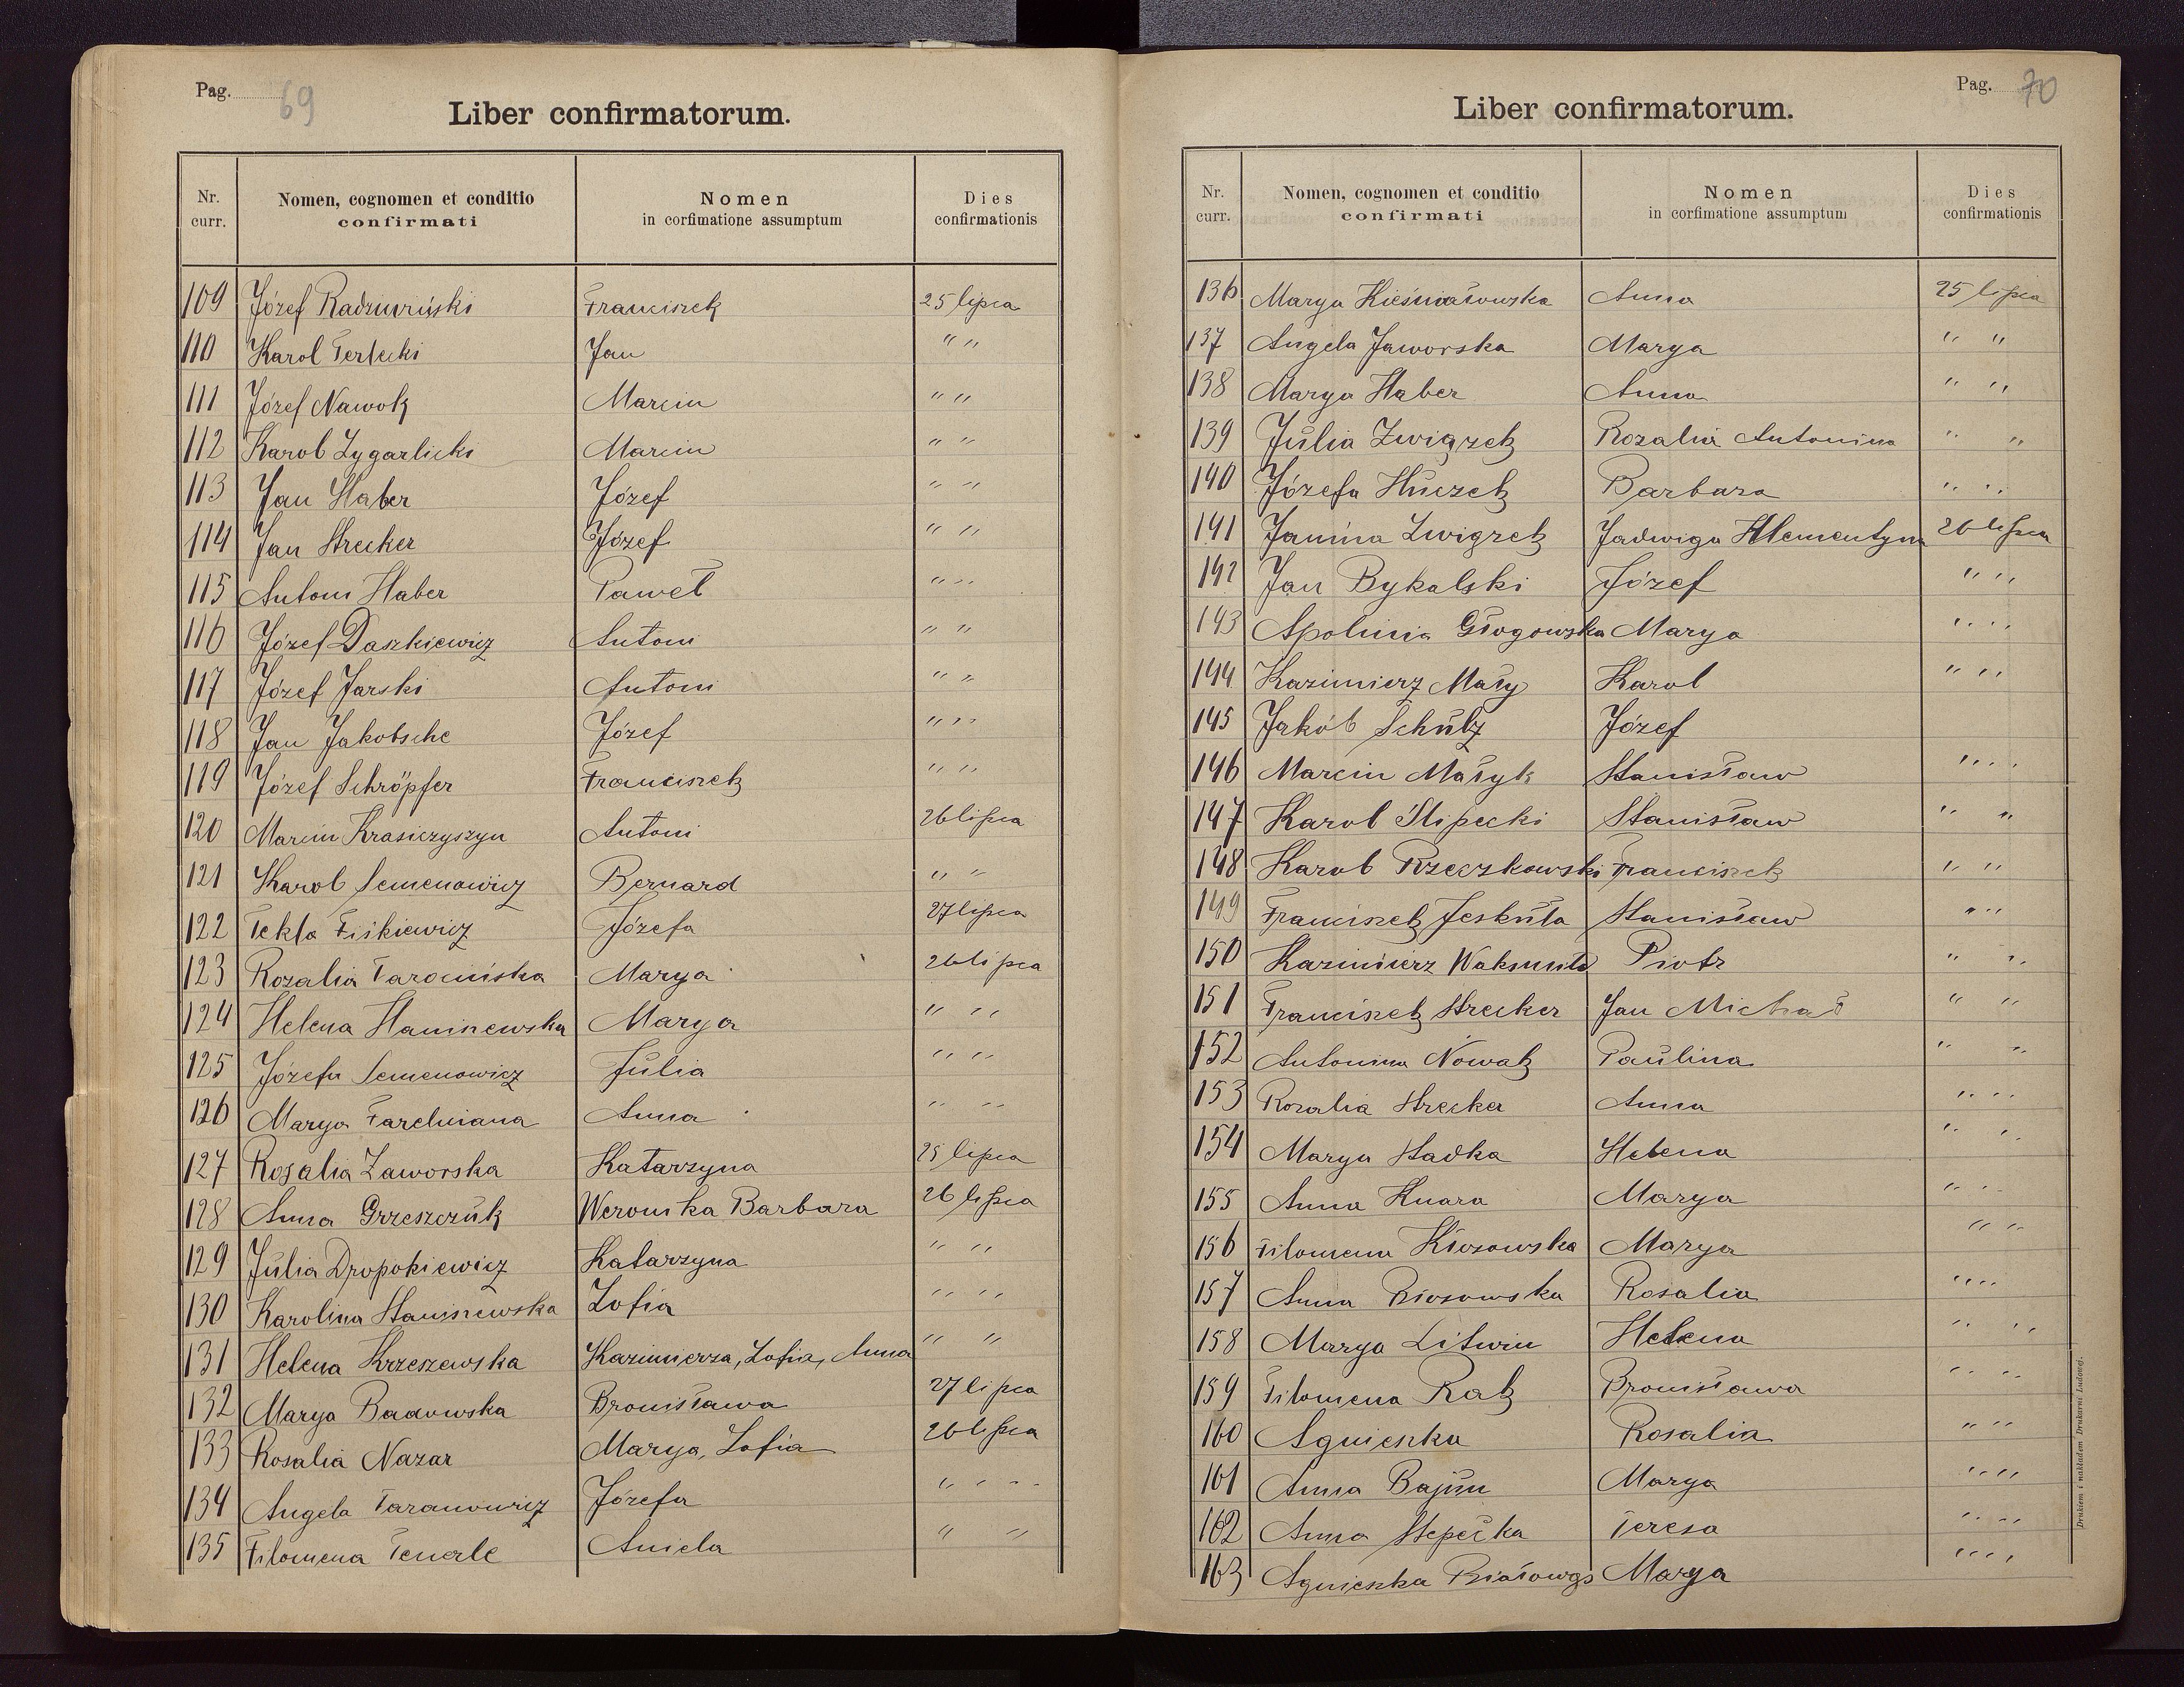 Pag. 69
Liber confirmatorum.
Nr. curr. Nomen, cognomen et conditio confirmati Nomen in corfimatione assumptum Dies confirmationis
109 Józef Radziwiński Franciszek 25 lipca
110 Karol Terlecki Jan " "
111 Józef Nawok Marcin " "
112 Karol Zygarlicki Marcin " "
113 Jan Haber Józef " "
114 Jan Strecker Józef " "
115 Antoni Haber Paweł " "
116 Józef Daszkiewicz Antoni " "
117 Józef Jarski Antoni " "
118 Jan Jakobsche Józef " "
119 Józef Schröpfer Franciszek " "
120 Marcin Krasiczyszyn Antoni 26 lipca
121 Karol Semenowicz Bernard " "
122 Tekla Fiśkiewicz Józefa 27 lipca
123 Rozalia Marya 26 lipca
124 Helena Staniszewska Marya " "
125 Józefa Semenowicz Julia " "
126 Marya Anna " "
127 Rozalia Zaworska Katarzyna 25 lipca
128 Anna Grzeszczuk Weronika Barbara 26 lipca
129 Julia Dropokiewicz Katarzyna " "
130 Karolina Staniszewska Zofia " "
131 Helena Krzeszewska Kazimierza, Zofia, Anna " "
132 Marya Badowska Bronisława 27 lipca
133 Rosalia Nazar Marya, Zofia 26 lipca
134 Angela Taranowicz Józefa " "
135 Filomena Teuerle Aniela " "
Pag. 70
Liber confirmatorum.
Nr. curr. Nomen, cognomen et conditio confirmati Nomen in corfimatione assumptum Dies confirmationis
136 Marya Anna 25 lipca
137 Angela Jaworska Marya " "
138 Marya Haber Anna " "
139 Julia Związek Rozalia Antonina " "
140 Józefa Huczek Barbara " "
141 Janina Związek Jadwiga Klementyna 26 lipca
142 Jan Bykalski Józef " "
143 Apolinia Głogowska Marya " "
144 Kazimierz Mały Karol " "
145 Jakób Schulz Józef
146 Marcin Małyk Stanisław " "
147 Karol Slipecki Stanisław " "
148 Karol Rzeczkowski Franciszek " "
149 Franciszek Jeskuła Stanisław " "
150 Kazimierz Piotr " "
151 Franciszek Strecker Jan Michał " "
152 Antonina Nowak Paulina " "
153 Rozalia Strecker Anna " "
154 Marya Sławka Helena " "
155 Anna Knara Marya " "
156 Filomena Kłosowska Marya " "
157 Anna Rosalia " "
158 Marya Litwin Helena " "
159 Filomena Rak Bronisława " "
160 Agnieszka Rosalia " "
161 Anna Bajun Marya " "
162 Anna Teresa " "
163 Agnieszka Marya " "
Drukiem i nakładem Drukarni Ludowej.